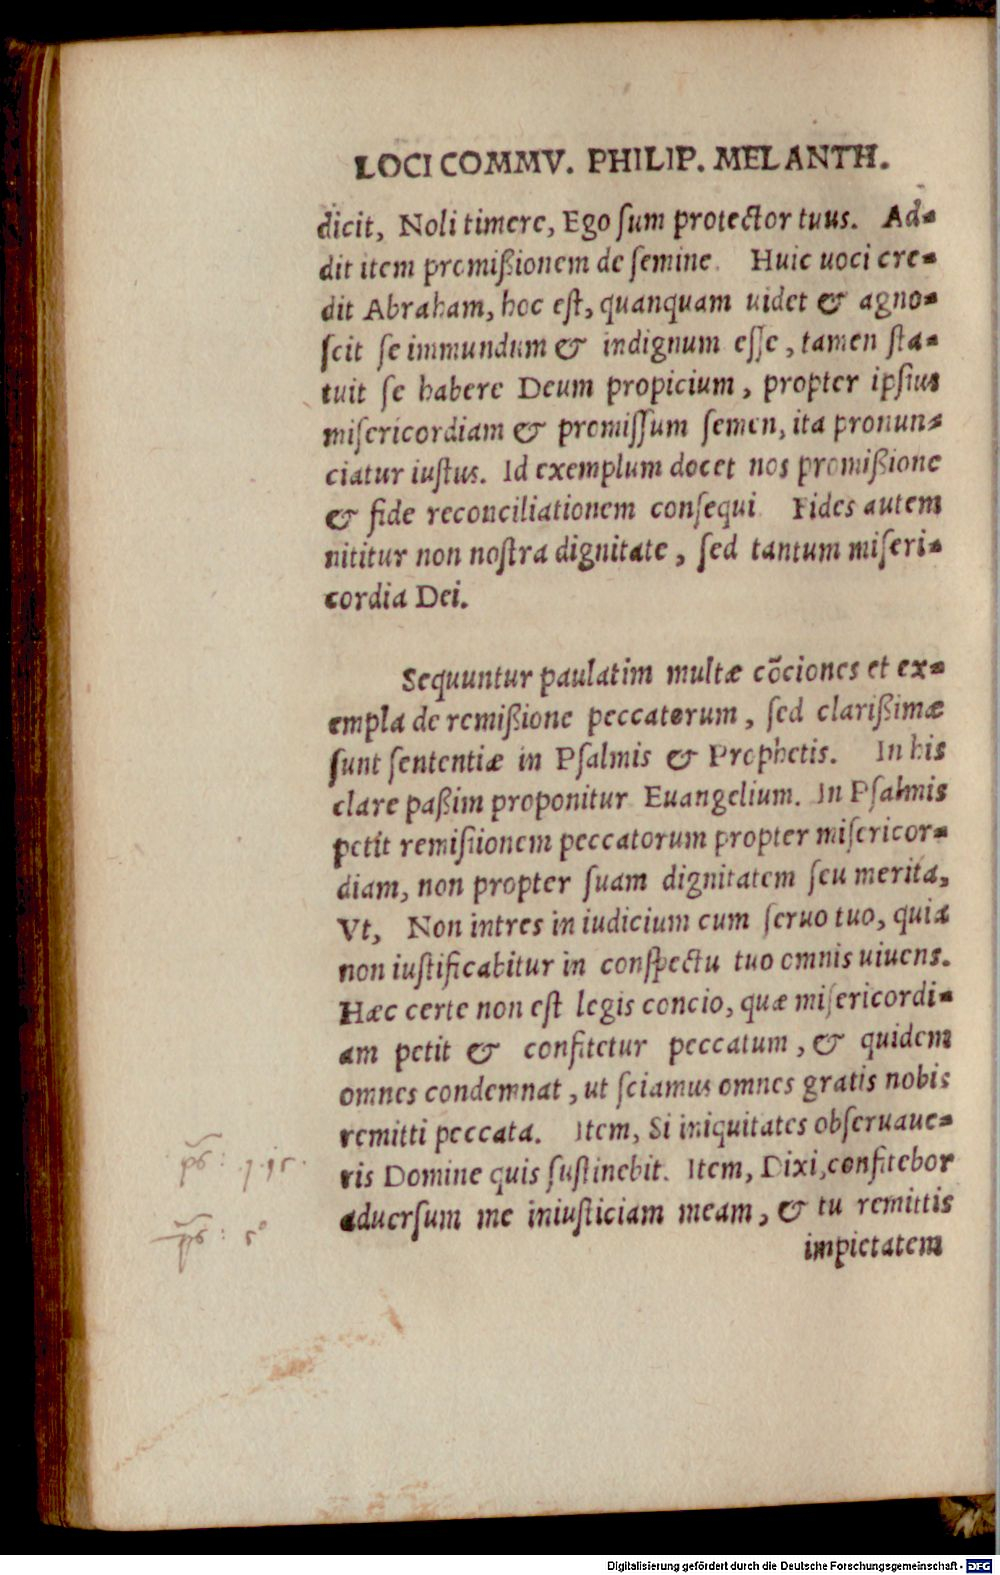 LOCI COMMV. PHILIP. MELANTH.
dicit, Noli timere, Ego ſum protector tuus. Ad=
dit item promißionem de ſemine. Huic uoci cre=
dit Abraham, hoc eſt, quanquam uidet & agno=
ſcit ſe immundum & indignum eſſe, tamen ſta=
tuit ſe habere Deum propicium, propter ipſius
miſericordiam & promiſſum ſemen, ita pronun=
ciatur iuſtus. Id exemplum docet nos promißione
& fide reconciliationem conſequi. Fides autem
nititur non noſtra dignitate, ſed tantum miſeri=
cordia Dei.
Sequuntur paulatim multæ cōciones et ex=
empla de remißione peccatorum, ſed clarißimæ
ſunt ſententiæ in Pſalmis & Prophetis. In his
clare paßim proponitur Euangelium. In Pſalmis
petit remiſsionem peccatorum propter miſericor=
diam, non propter ſuam dignitatem ſeu merita,
Vt, Non intres in iudicium cum ſeruo tuo, quia
non iuſtificabitur in conſpectu tuo omnis uiuens.
Hæc certe non eſt legis concio, quæ miſericordi=
am petit & confitetur peccatum, & quidem
omnes condemnat, ut ſciamus omnes gratis nobis
remitti peccata. Item, Si iniquitates obſeruaue=
ris Domine quis ſuſtinebit. Item, Dixi, confitebor
aduerſum me iniuſticiam meam, & tu remittis
impietatem
Digitalisierung gefördert durch die Deutsche Forschungsgemeinschaft - DFG